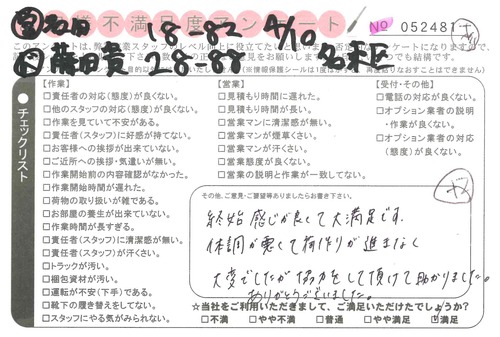 不満足度アンケート
No 052481
18-82 4/10
2-8-88 名東区
【作業】
□責任者の対応(態度)が良くない。
□他のスタッフの対応(態度)が良くない。
□作業を見ていて不安がある。
□責任者(スタッフ)に好感が持てない。
□お客様への挨拶が出来ていない。
□ご近所への挨拶・気遣いが無い。
□作業開始前の内容確認がなかった。
□作業開始時間が遅れた。
□荷物の取り扱いが雑である。
□お部屋の養生が出来ていない。
□作業時間が長すぎる。
□責任者(スタッフ)に清潔感が無い。
□責任者(スタッフ)が汗くさい。
□トラックが汚い。
□梱包資材が汚い。
□運転が不安(下手)である。
□靴下の履き替えをしてない。
□スタッフにやる気がみられない。
【営業】
□見積もり時間に遅れた。
□見積もり時間が長い。
□営業マンに清潔感が無い。
□営業マンが煙草くさい。
□営業マンが汗くさい。
□営業態度が良くない。
□営業の説明と作業が一致してない。
【受付・その他】
□電話の対応が良くない。
□オプション業者の説明
・作業が良くない。
□オプション業者の対応
(態度)が良くない。
チェックリスト
その他、ご意見・ご要望等ありましたらお書き下さい。
終始感じが良くて大満足です。
体調が悪くて荷作りが進まなく
大変でしたが協力をして頂けて助かりました。
ありがとうございました。
☆当社をご利用いただきまして、ご満足いただけたでしょうか?
□不満 □やや不満 □普通 □やや満足 ☑満足